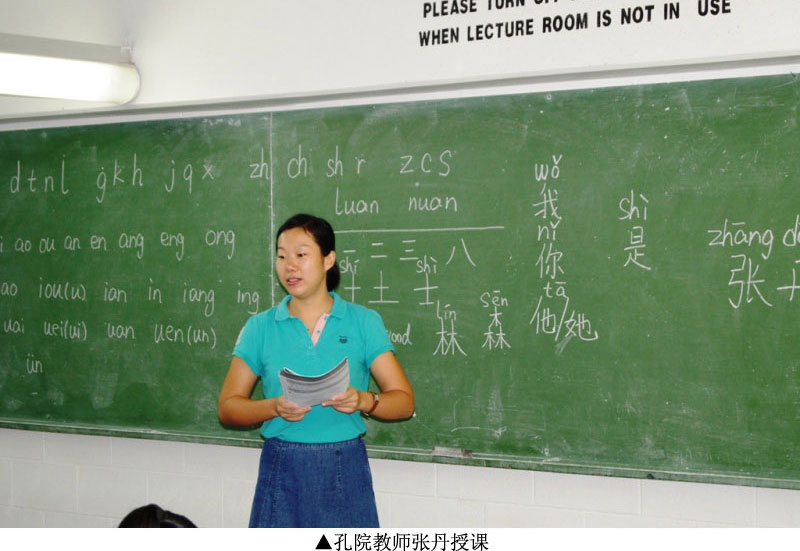 PLEASE TURN OFF
WHEN LECTURE ROOM IS NOT IN USE
d t n l g k h j q x zh ch sh r z c s
luan nuan
i ao ou an en ang eng ong
ao iou(u) ian in iang ing
uai uei(ui) uan uen(un)
ün
一 二 三 八
shí shì
十 土 士
ood
lín sēn
林 森
wǒ
我
nǐ
你
tā
他/她
shì
是
zhāng d
张
▲孔院教师张丹授课